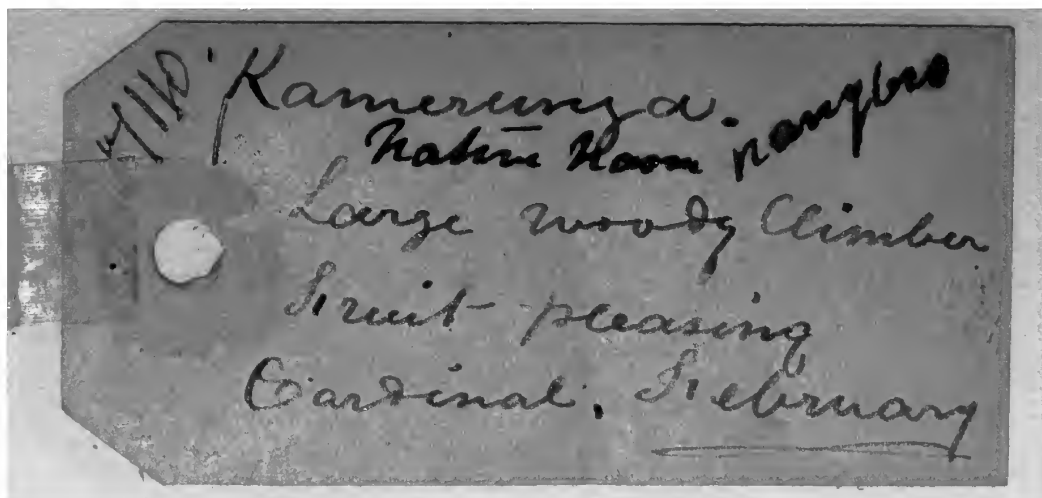 Kamerunga.
Native Name
Large woody Climber
Fruit pleasing
Cardinal. February